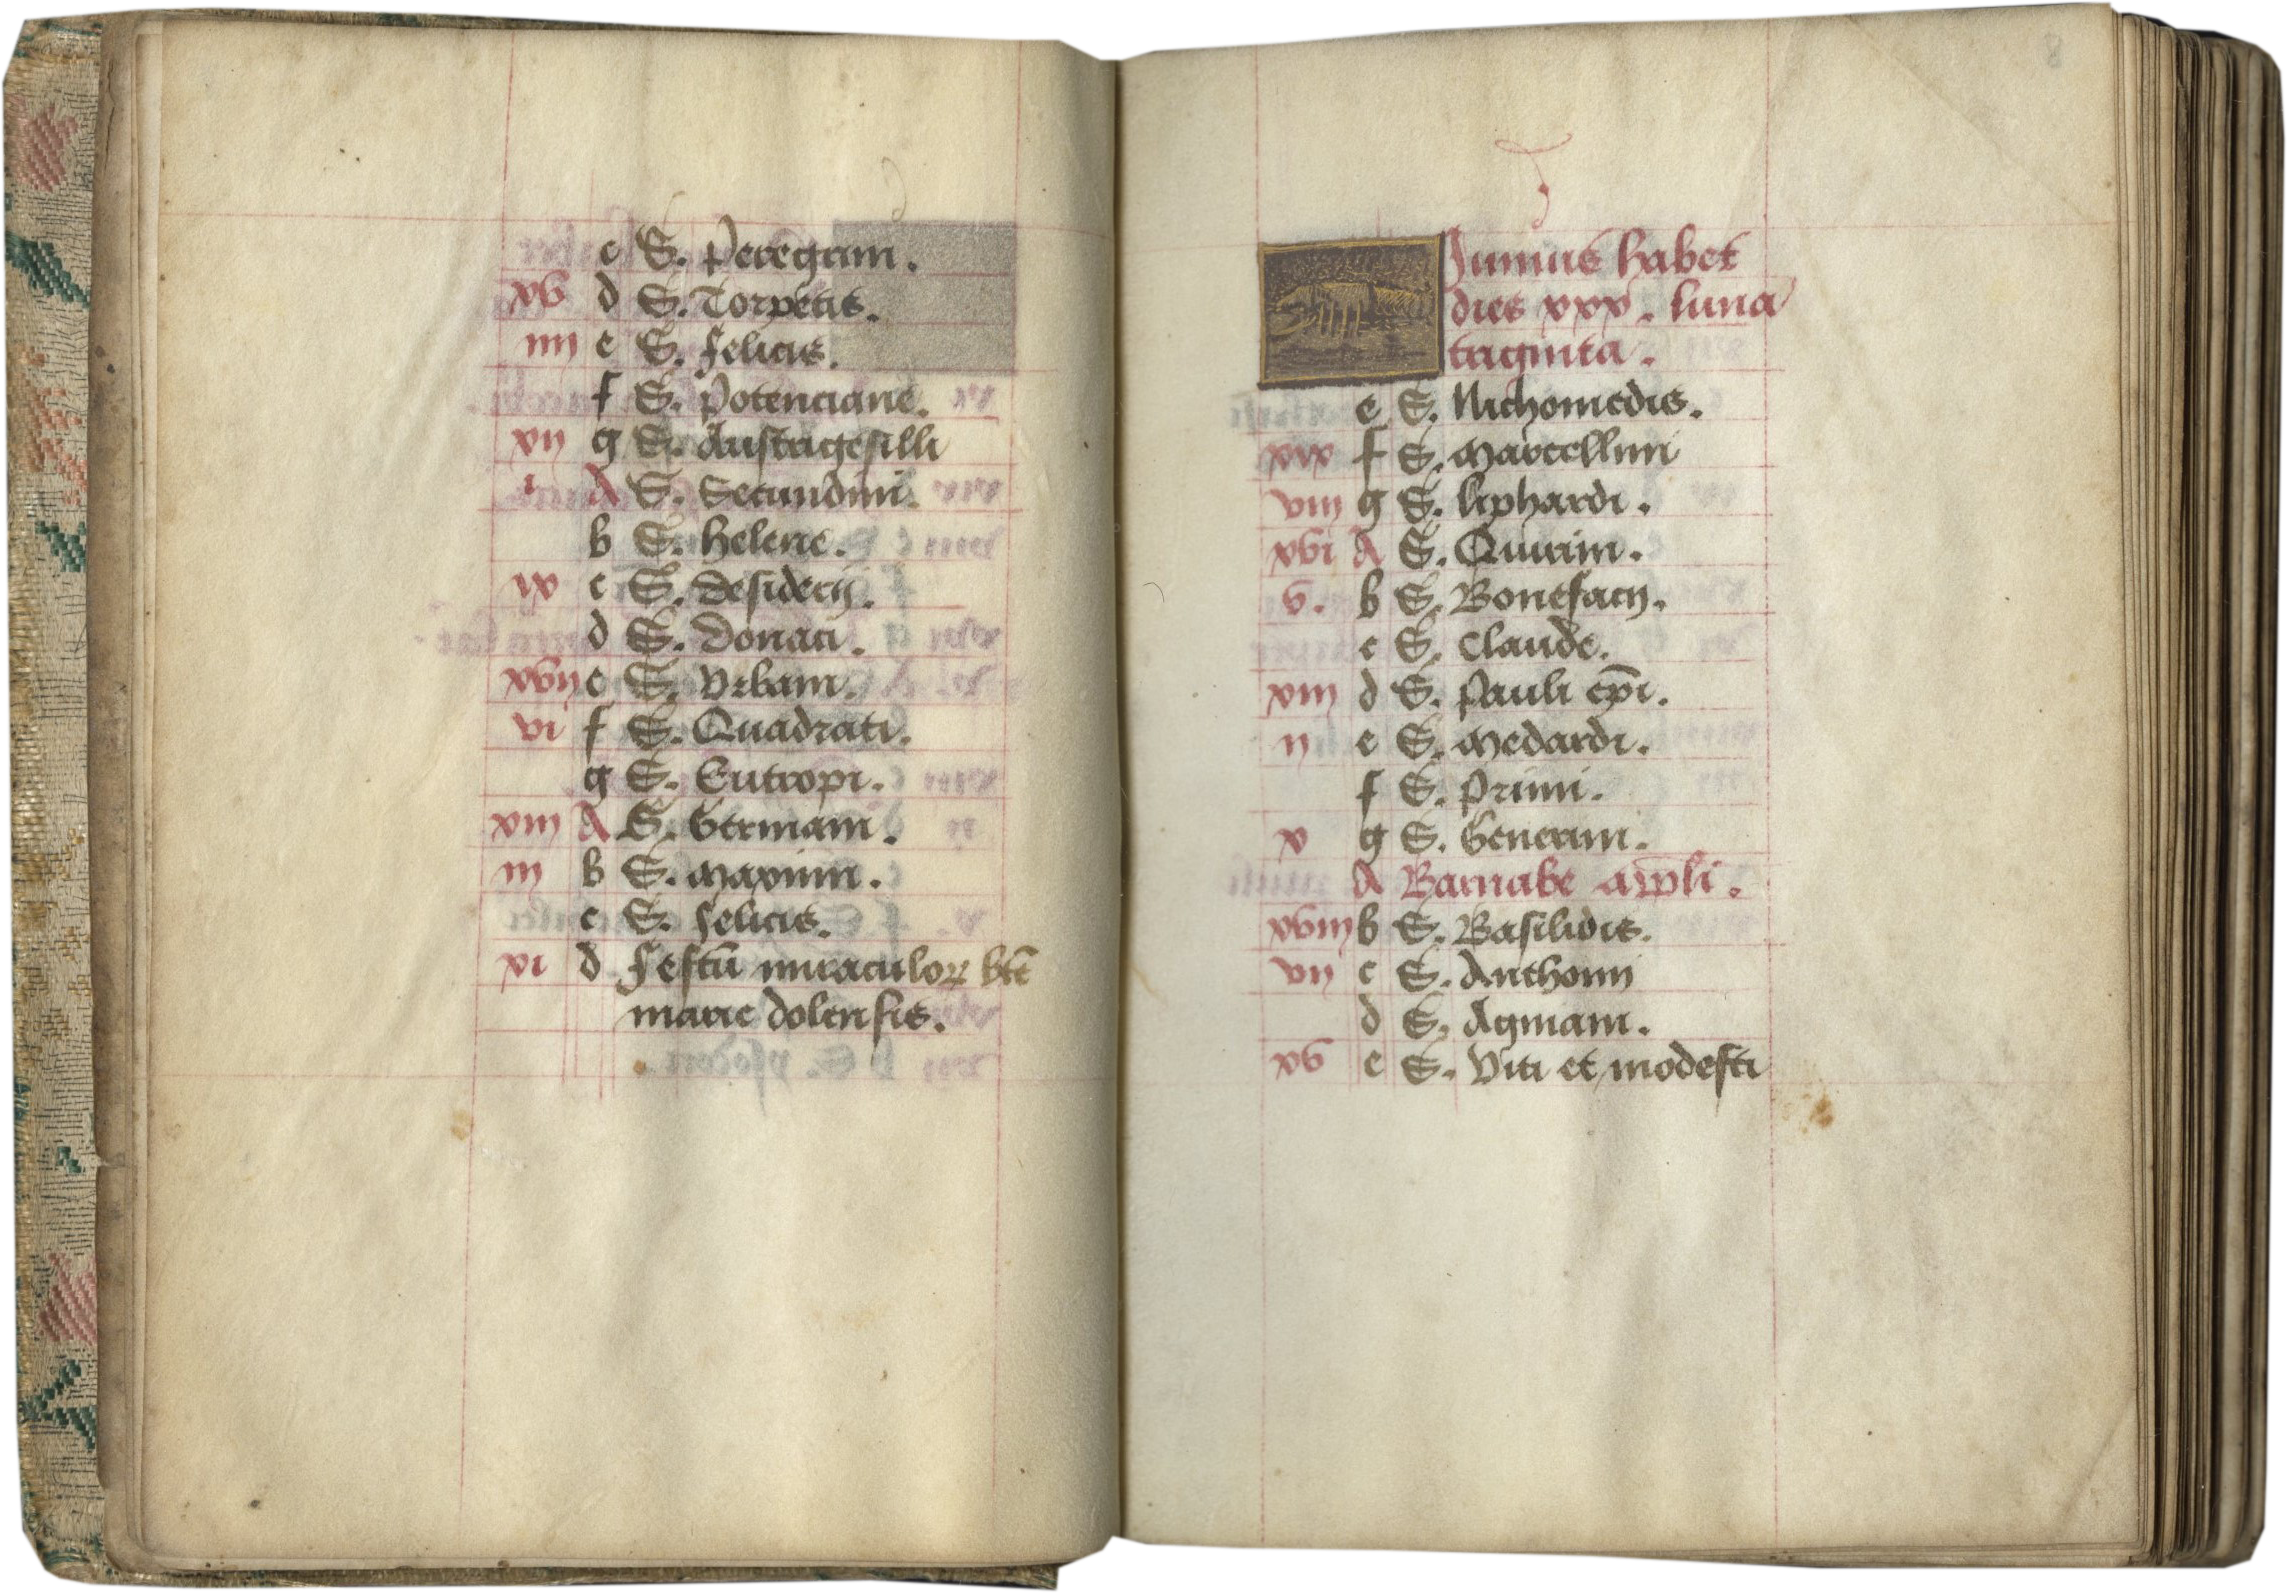 c S. Peregrini.
xv d S. Torpetis.
iiij e S. felicis.
f S. Potenciane.
xij g S. Austrigesilli
i A S. Secundini.
b S. helene.
ix c S. desiderij.
d S. donati.
xvij e S. Urbani.
vi f S. Quadrati.
g S. Eutropi.
xiiij A S. Germani.
iij b S. maximi.
c S. felicis.
xi d festū miraculoꝝ bte
marie dolensis.
8
Junius habet
dies xxx. luna
triginta.
e S. Nichomedis.
xix f S. marcellini
viij g S. liphardi.
xvi A S. Quirini.
v. b S. Bonefacij.
c S. Claude.
xiij d S. Pauli epī.
ij e S. medardi.
f S. Primi.
x g S. Generini.
A Barnabe apli.
xviij b S. Basilidis.
vij c S. Anthonij
d S. Agniani.
xv e S. Viti et modesti